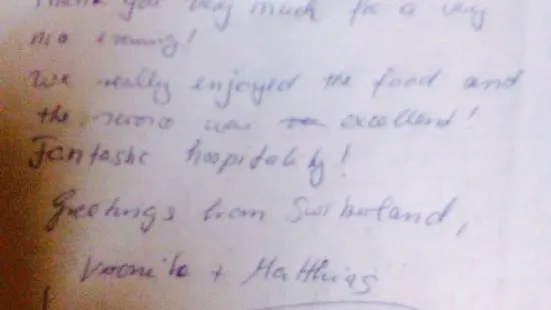 Thank you very much for a very
nice evening!
We really enjoyed the food and
the service was excellent!
Fantastic hospitality!
Greetings from Switzerland,
Veronika + Matthias